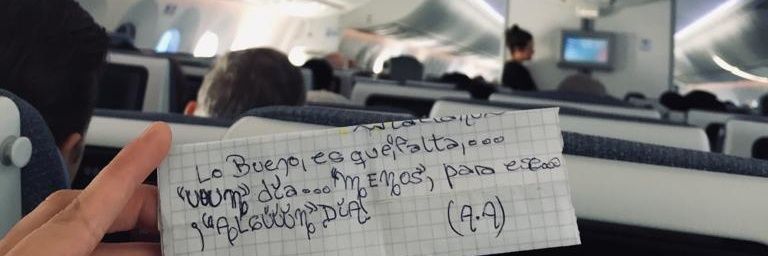 Lo Bueno, es que, falta,...
"UUUN" día... "MENOS", para ese...
¡"ALGÚÚÚN" DÍA!
(A.A)